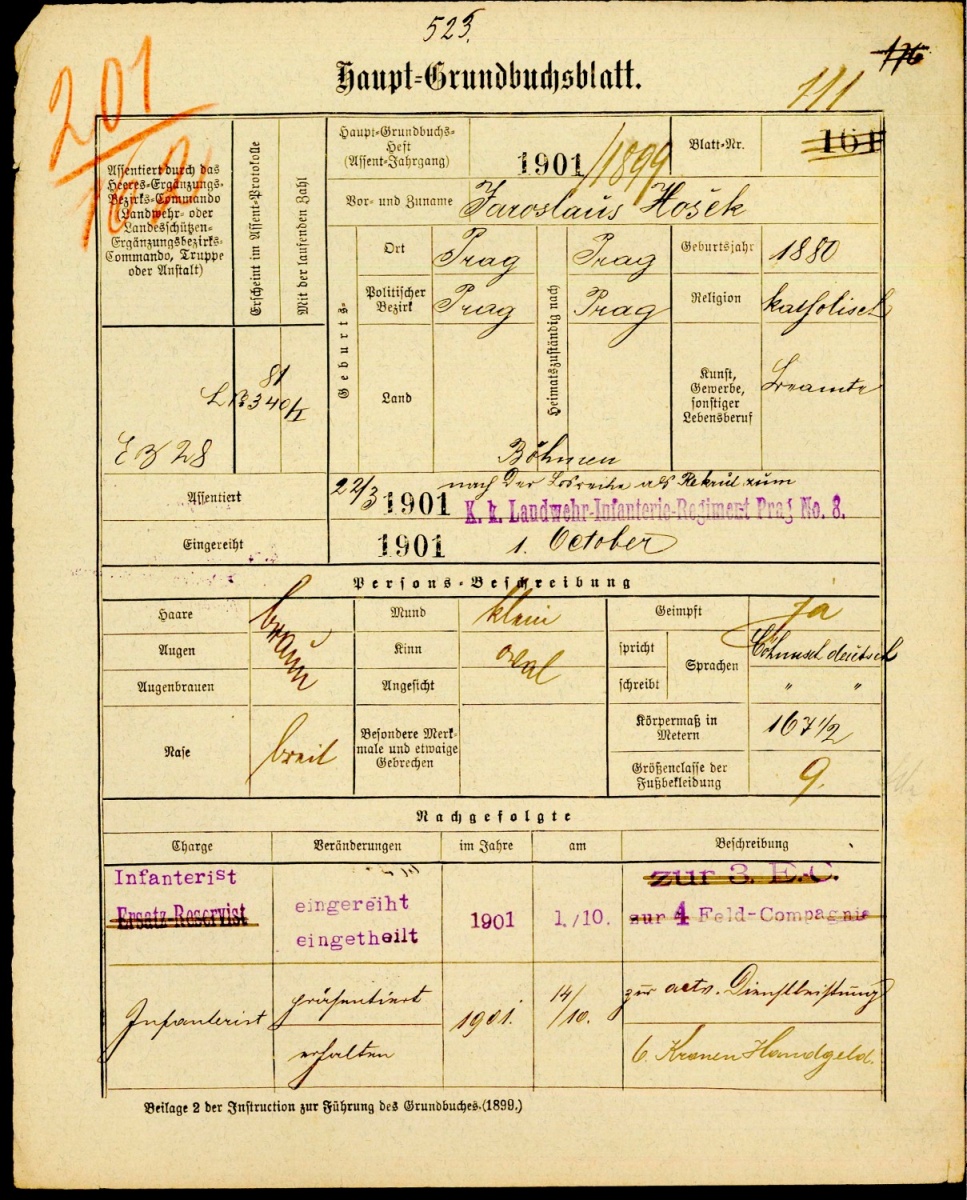 523.
Haupt-Grundbuchsblatt.
176
111
201
162
Assentiert durch das
Heeres-Ergänzungs-
Bezirks-Commando
(Landwehr- oder
Landesschützen-
Ergänzungsbezirks-
Commando, Truppe
oder Anstalt)
Erscheint im Assent-Protokolle
Mit der laufenden Zahl
Haupt-Grundbuchs-
Heft
(Assent-Jahrgang)
1901/1899
Blatt-Nr.
161
Vor- und Zuname
Jaroslaus Hošek
Geburts-
Ort
Prag
Heimatszuständig nach
Prag
Geburtsjahr
1880
Politischer
Bezirk
Prag
Prag
Religion
katholisch
Land
Böhmen
Kunst,
Gewerbe,
sonstiger
Lebensberuf
Beamte
E B 28
81
340/I
Assentiert
22/3 1901
nach der Losreihe als Rekrut zum
K. k. Landwehr-Infanterie-Regiment Prag No. 8.
Eingereiht
1901
1. October
Persons-Beschreibung
Haare
braun
Mund
klein
Geimpft
ja
Augen
Kinn
oval
spricht
Sprachen
böhmisch deutsch
Augenbrauen
Angesicht
schreibt
" "
Nase
breit
Besondere Merk-
male und etwaige
Gebrechen
Körpermaß in
Metern
167 1/2
Größenclasse der
Fußbekleidung
9.
Nachgefolgte
Charge
Veränderungen
im Jahre
am
Beschreibung
Infanterist
Ersatz-Reservist
eingereiht
eingetheilt
1901
1./10.
zur 3. E.C.
zur 4 Feld-Compagnie
Infanterist
präsentiert
1901.
14/10.
zur activ. Dienstleistung
erhalten
6. Kronen Handgeld.
Beilage 2 der Instruction zur Führung des Grundbuches.(1899.)